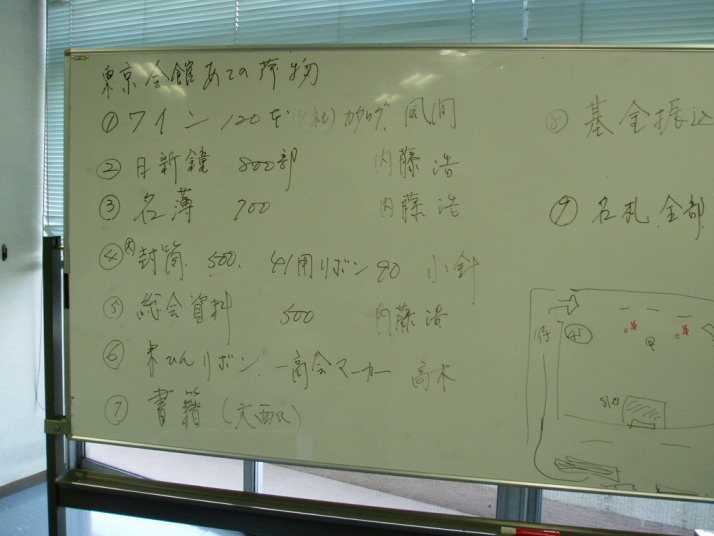 東京会館あての荷物
① ワイン 120本 カタログ 風間
② 日新鐘 800部 内藤浩
③ 名薄 700 内藤浩
④ 大封筒 500. 41用リボン 90 小針
⑤ 総会資料 500 内藤浩
⑥ 来ひんリボン、一高会マーカー 高木
⑦ 書籍
⑧ 基金振込
⑨ 名札 全部